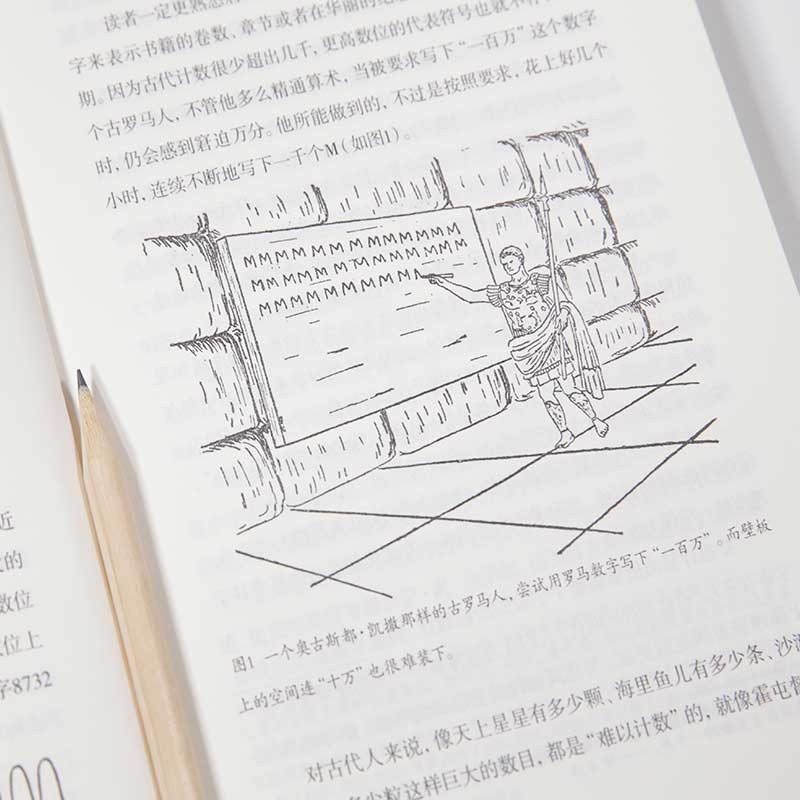 读者一定更熟悉
字来表示书籍的卷数、章节或者在华丽的纪
期。因为古代计数很少超出几千，更高数位的代表符号也就不存
个古罗马人，不管他多么精通算术，当被要求写下“一百万”这个数字
时，仍会感到窘迫万分。他所能做到的，不过是按照要求，花上好几个
小时，连续不断地写下一千个M（如图1）。
MMMMMMMMMMMMM
MMMMMMMMMMMMM
MMMMMMMMMM
图1 一个奥古斯都·凯撒那样的古罗马人，尝试用罗马数字写下“一百万”。而壁板
上的空间连“十万”也很难装下。
对古代人来说，像天上星星有多少颗、海里鱼儿有多少条、沙滩
多少粒这样巨大的数目，都是“难以计数”的，就像霍屯督
近
的
数位
位上
字8732
00